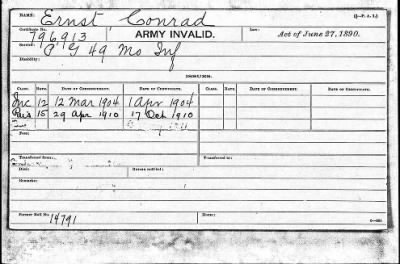 NAME: Ernst Conrad (3-P. A. I.)
Certificate No. 796,913 ARMY INVALID. Law: Act of June 27, 1890.
Service: P G 49 Mo Inf
Disability:
CLASS. RATE. DATE OF COMMENCEMENT. DATE OF CERTIFICATE. CLASS. RATE. DATE OF COMMENCEMENT. DATE OF CERTIFICATE.
Inc 12 12 Mar 1904 1 Apr 1904
Reis 15 29 Apr 1910 17 Oct 1910
Post:
Transferred from
Died: Bureau notified:
Remarks:
Former Roll No. 14791 Home: